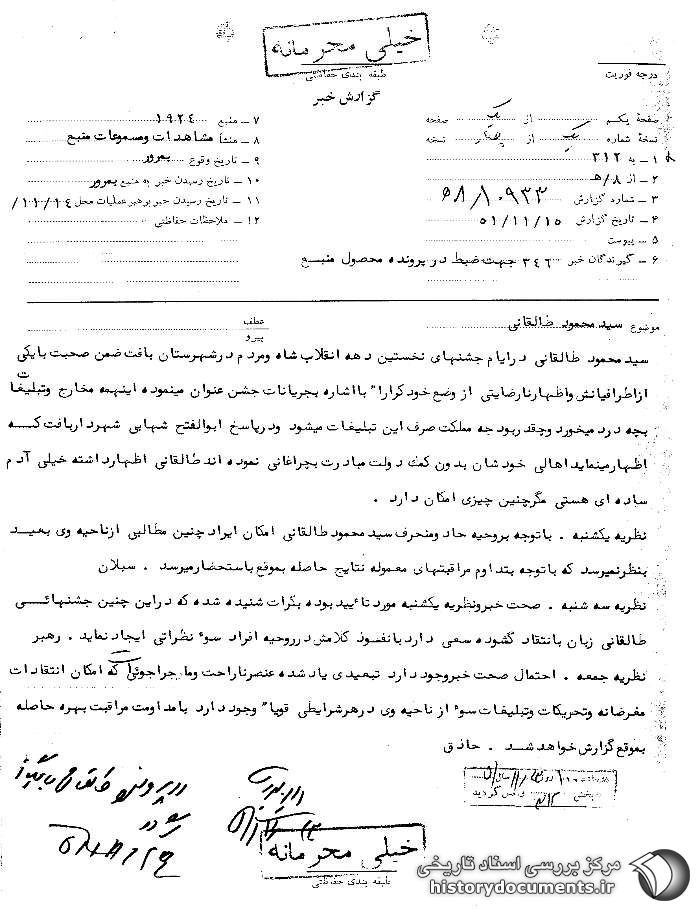 خیلی محرمانه
طبقه بندی حفاظتی
درجه فوریت
گزارش خبر
صفحهٔ یکم از یک صفحه
نسخهٔ شماره یک از چهار نسخه
۱ – به ۳۱۲
۲ – از ۸/ه
۳ – شماره گزارش ۵۸۱۰۹۳۳
۴ – تاریخ گزارش ۵۱/۱۱/۱۵
۵ – پیوست
۶ – گیرندگان خبر ۳۴۶ جهت ضبط در پرونده محصول منبع
۷ – منبع ۱۹۲۴
۸ – منشأ مشاهدات ومسموعات منبع
۹ – تاریخ وقوع بمرور
۱۰ – تاریخ رسیدن خبر به منبع بمرور
۱۱ – تاریخ رسیدن خبر برهبر عملیات محل ۱۱/۱۴/
۱۲ – ملاحظات حفاظتی
موضوع سید محمود طالقانی
عطف
پیرو
سید محمود طالقانی درایام جشنهای نخستین دهه انقلاب شاه ومردم درشهرستان بافت ضمن صحبت بایکی
ازاطرافیانش واظهارنارضایتی از وضع خود کرارا" بااشاره بجریانات جشن عنوان مینموده اینهمه مخارج وتبلیغات
بچه درد میخورد وچقدربودجه مملکت صرف این تبلیغات میشود ودرپاسخ ابوالفتح شهابی شهرداربافت کـه
اظهارمینماید اهالی خودشان بدون کمک دولت مبادرت بچراغانی نموده اند طالقانی اظهارداشته خیلی آدم
ساده ای هستی مگرچنین چیزی امکان دارد .
نظریه یکشنبه . باتوجه بروحیه حاد ومنحرف سید محمود طالقانی امکان ایراد چنین مطالبی ازناحیه وی بعیـد
بنظرنمیرسد که باتوجه بتداوم مراقبتهای معموله نتایج حاصله بموقع باستحضارمیرسد . سبلان
نظریه سه شنبه . صحت خبرونظریه یکشنبه مورد تأیید بوده بکرات شنیده شده که دراین چنین جشنهائـی
طالقانی زبان بانتقاد گشوده سعی دارد بانفوذ کلامش درروحیه افراد سوء نظراتی ایجاد نماید . رهبر
نظریه جمعه . احتمال صحت خبروجود دارد تبعیدی یاد شده عنصرناراحت وماجراجوئی که امکان انتقادات
مغرضانه وتحریکات وتبلیغات سوء از ناحیه وی درهرشرایطی قویا" وجود دارد بامداومت مراقبت بهره حاصله
بموقع گزارش خواهد شـد . حاذق
در پرونده
خیلی محرمانه
طبقه بندی حفاظتی
مرکز بررسی اسناد تاریخی
historydocuments.ir